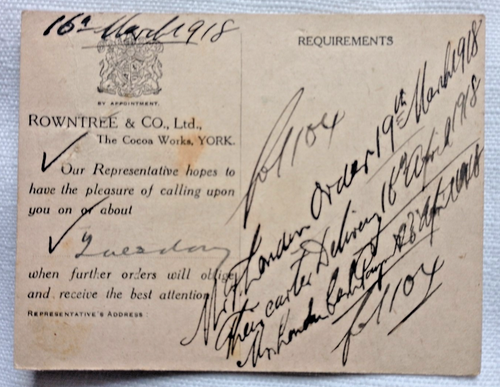 16th March 1918
BY APPOINTMENT.
ROWNTREE & CO., Ltd.,
The Cocoa Works, YORK.
Our Representative hopes to
have the pleasure of calling upon
you on or about
Tuesday
when further orders will oblige
and receive the best attention
REPRESENTATIVE'S ADDRESS
REQUIREMENTS
fol 104
Mr London order 19th March 1918
Delivery 16th April 1918
Mr London 23 Apl 1918
fol 104